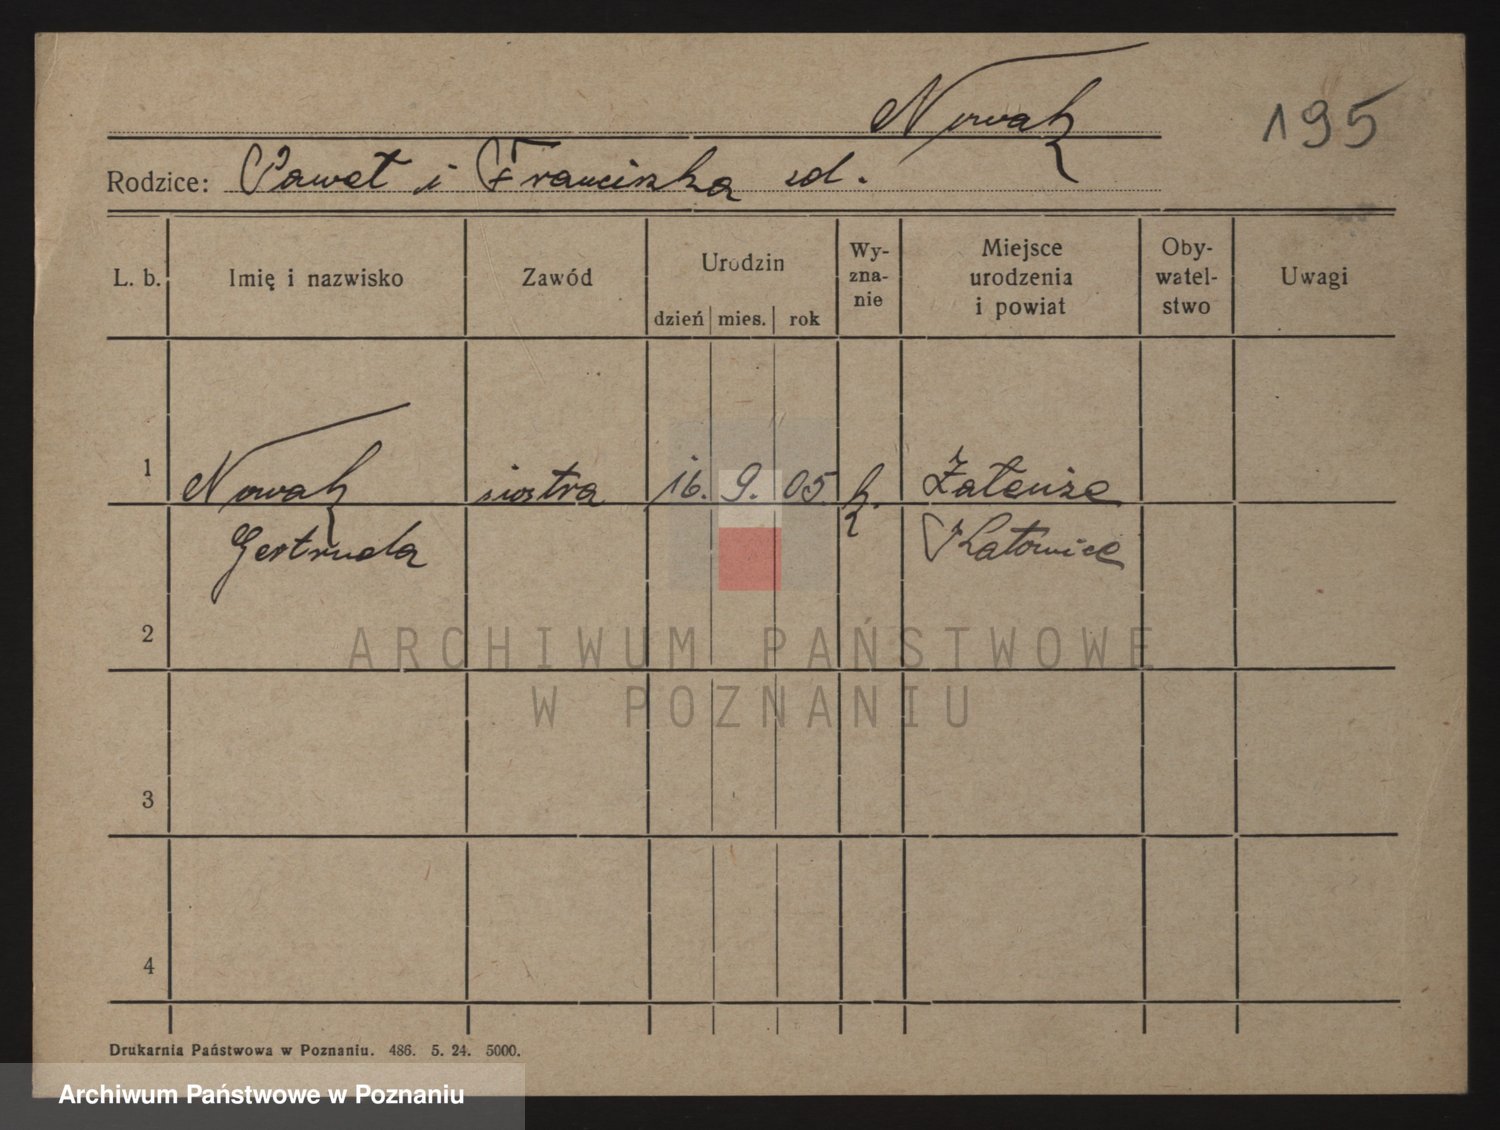 Nowak
195
Rodzice: Paweł i Franciszka zd.
L. b.
Imię i nazwisko
Zawód
Urodzin
dzień mies. rok
Wy-
zna-
nie
Miejsce
urodzenia
i powiat
Oby-
watel-
stwo
Uwagi
1 Nowak siostra 16. 9. 05 k. Załenże
Gertruda Katowice
2
ARCHIWUM PAŃSTWOWE
W POZNANIU
3
4
Drukarnia Państwowa w Poznaniu. 486. 5. 24. 5000.
Archiwum Państwowe w Poznaniu